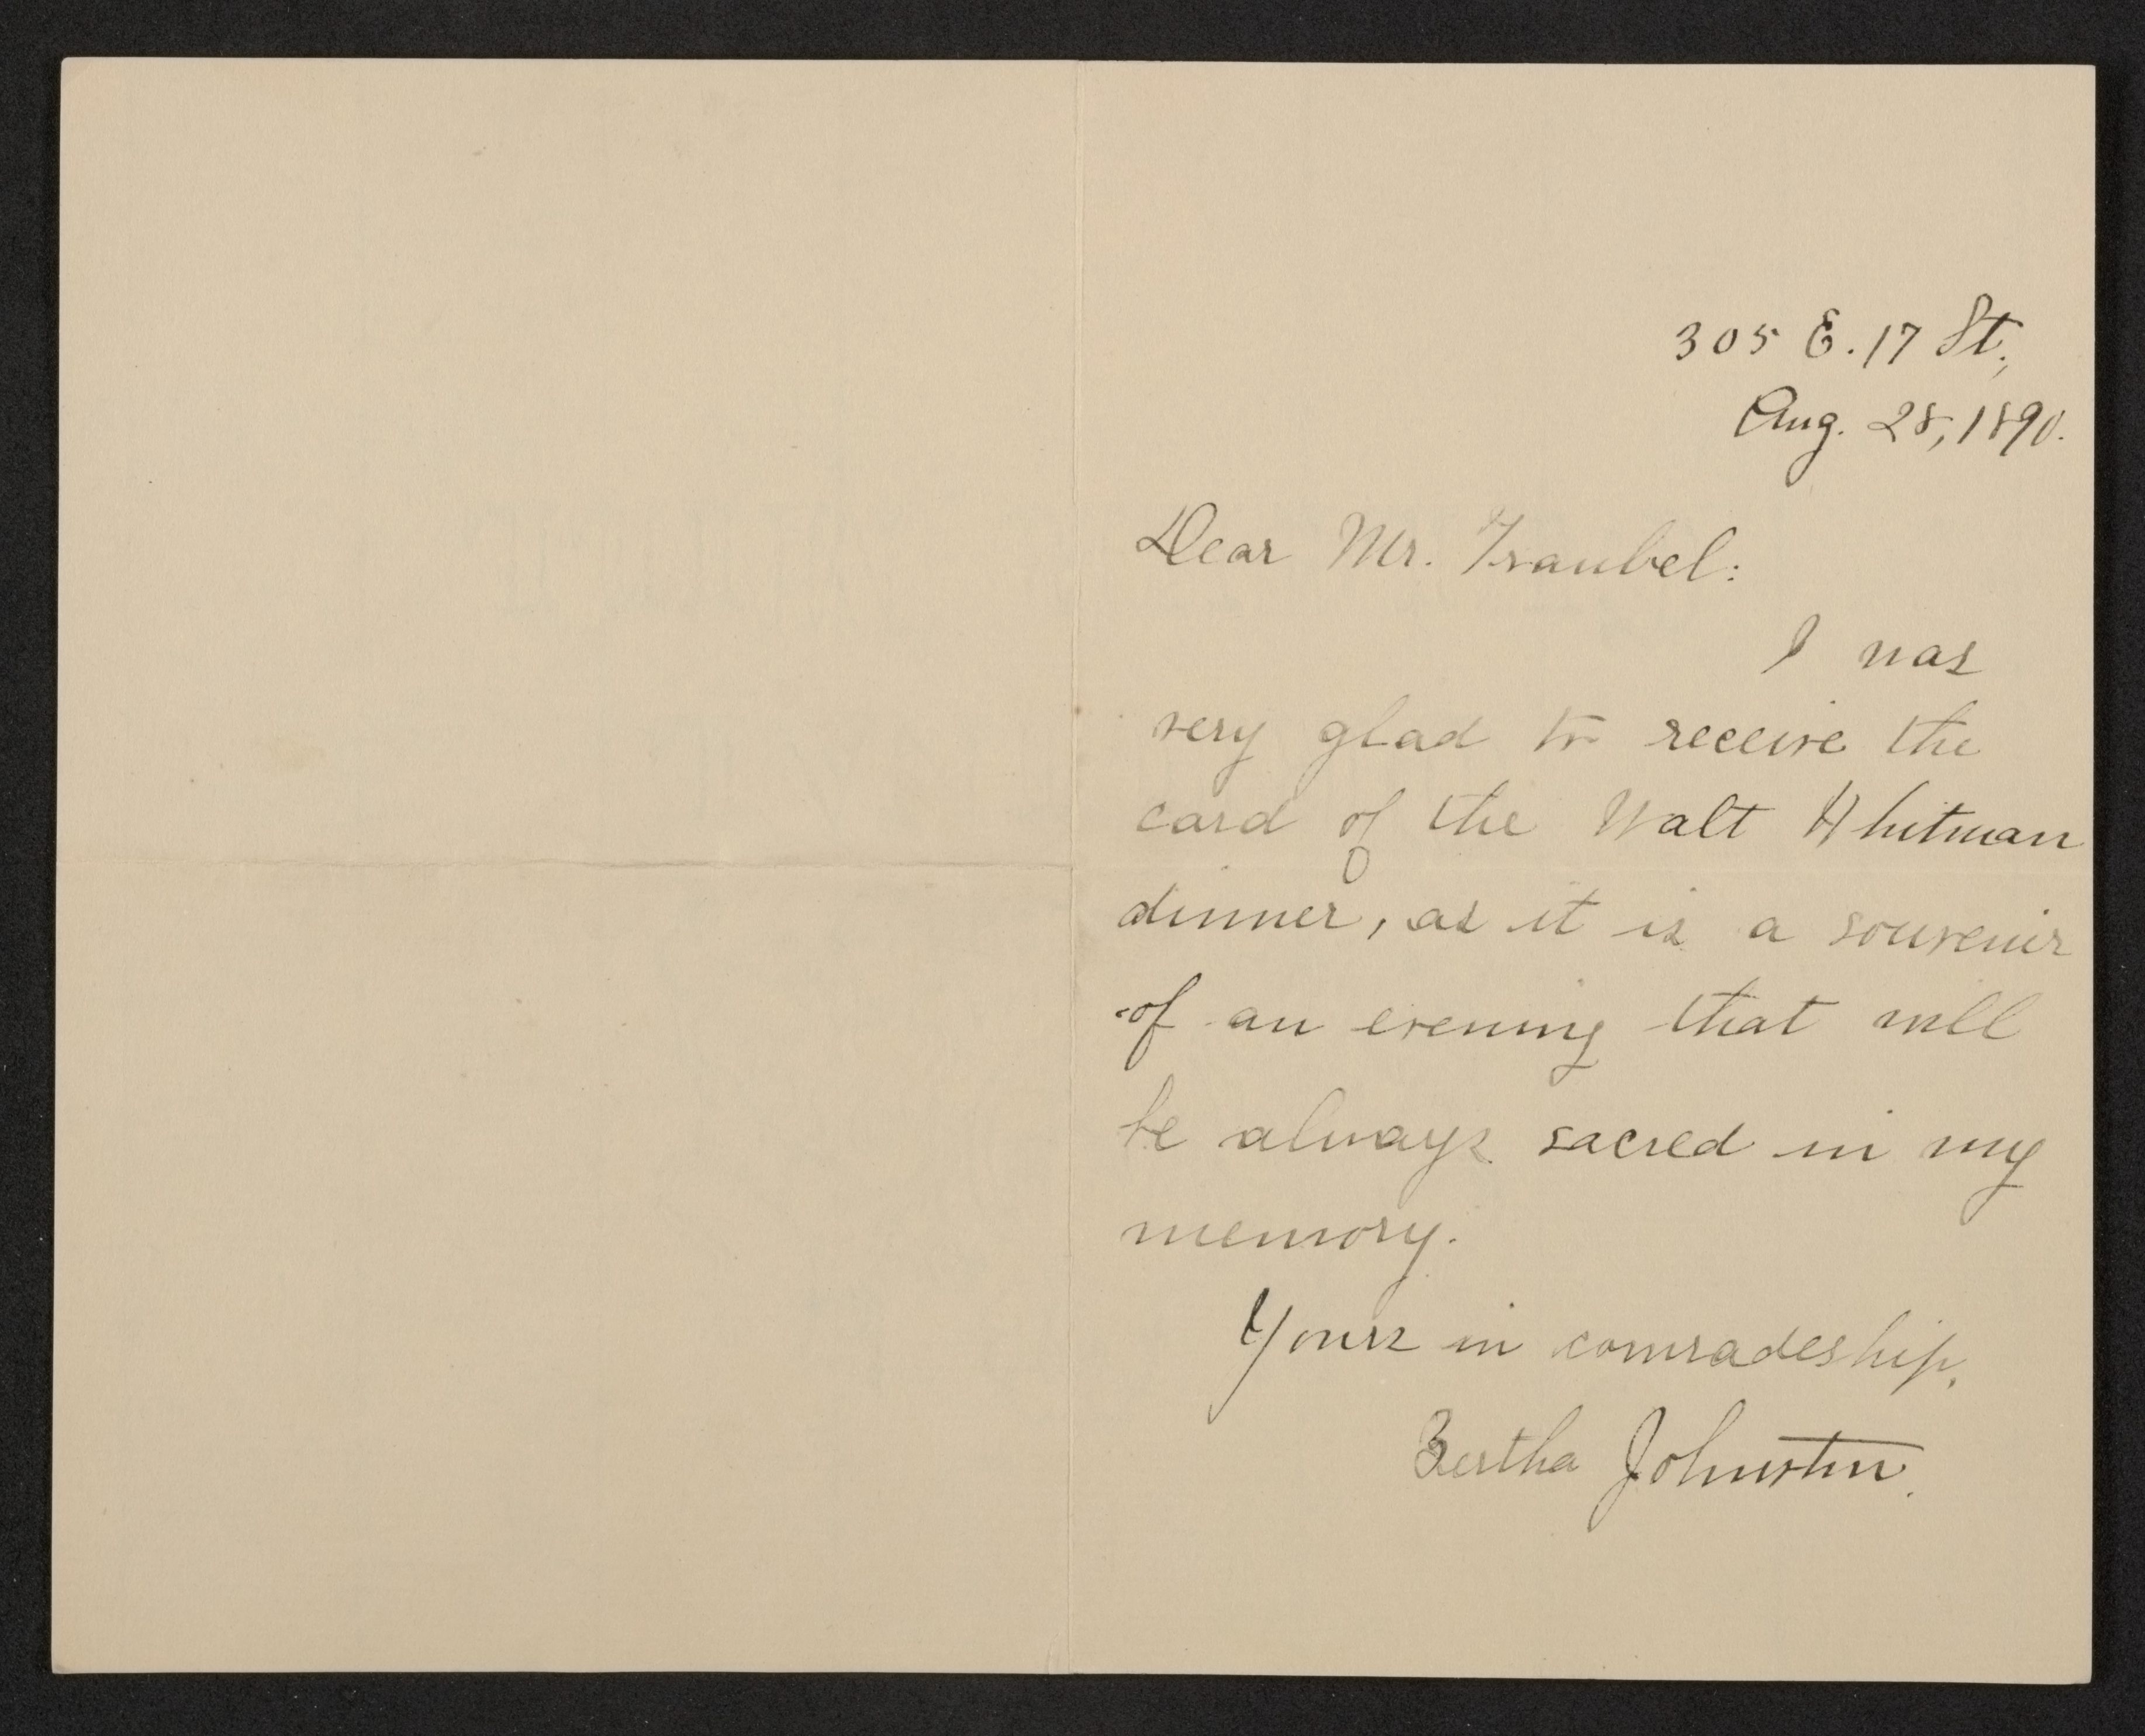 305 E. 17 St.,
Aug. 28, 1890.
Dear Mr. Traubel:
I was
very glad to receive the
card of the Walt Whitman
dinner, as it is a souvenir
of an evening that will
be always sacred in my
memory.
Yours in comradeship,
Bertha Johnston.